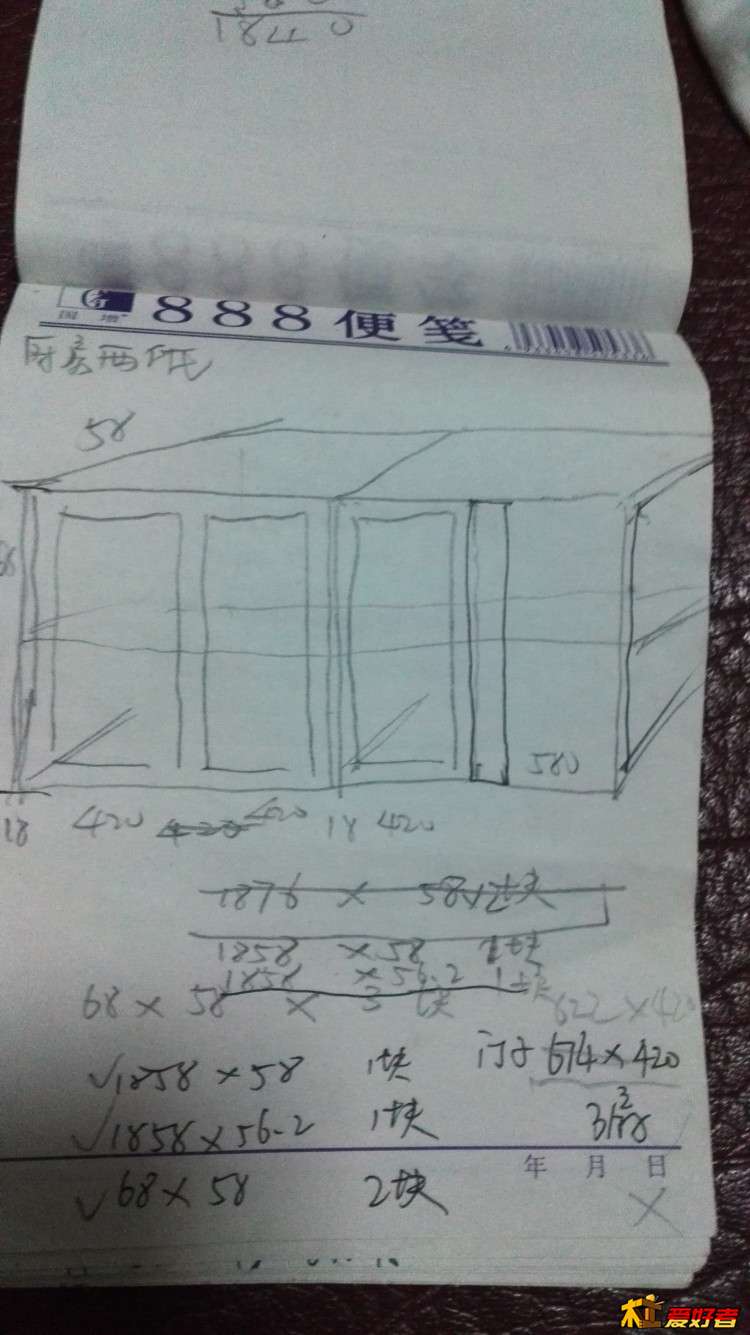 1840
888便笺
厨房西低
58
580
18 420 420 420 18 420
1876 × 58 2块
1858 × 58 1块
1858 × 56.2 1块
68 × 58 × 3块
622 × 420
√1858 × 58 1块
门子 674 × 420
√1858 × 56.2 1块
3扇
年 月 日
√68 × 58 2块
×
木工爱好者